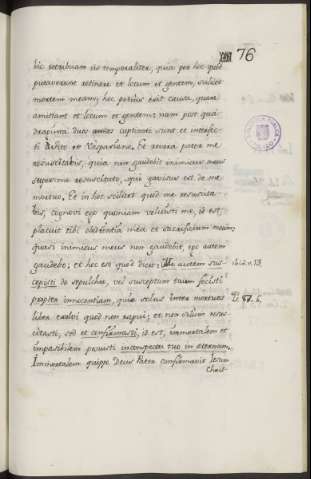 76
hic retribuam eis temporaliter, quia per hoc quod
putaverunt retinere et locum et gentem, scilicet
mortem meam, hoc potius erit causa, quare
amittant et locum et gentem; nam post qua
draginta duos annos captivati sunt et interfec
ti a Tito et Vespasiano. Et revera pater me
resuscitabis, quia non gaudebit inimicus meus
super me resuscitato, qui gavisus est de me
mortuo, Et in hoc scilicet quod me resuscita-
bis, cognovi ego quoniam voluisti me, id est,
placuit tibi obedientia mea et sacrificium meum,
quasi inimicus meus non gaudebit, ego autem
gaudebo; et hoc est quod dicit: Me autem sus-
cepisti de sepulchro, vel susceptum tuum fecisti
propter innocentiam, quia solus inter mortuos
liber exolvi quod non rapui; et non solum resus-
citasti, sed et confirmasti, id est, immortalem et
impasibilem posuisti in conspectu tuo in aeternum.
Immortalem quippe Deus Pater confirmavit Iesum
Christ-